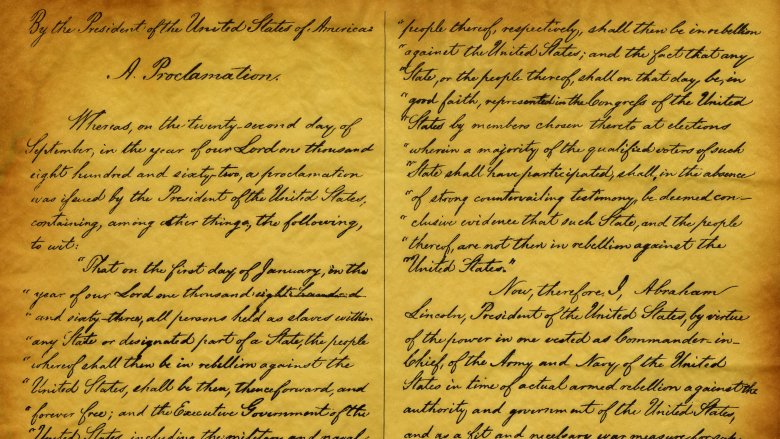 By the President of the United States of America:
A Proclamation.
Whereas, on the twenty-second day of
September, in the year of our Lord one thousand
eight hundred and sixty-two, a proclamation
was issued by the President of the United States,
containing, among other things, the following,
to wit:
"That on the first day of January, in the
"year of our Lord one thousand eight hundred
"and sixty-three, all persons held as slaves within
"any State or designated part of a State, the people
"whereof shall then be in rebellion against the
"United States, shall be then, thenceforward, and
"forever free; and the Executive Government of the
"United States, including the military and naval
"people thereof, respectively, shall then be in rebellion
"against the United States; and the fact that any
"State, or the people thereof, shall on that day be, in
"good faith, represented in the Congress of the United
"States by members chosen thereto at elections
"wherein a majority of the qualified voters of such
"State shall have participated, shall, in the absence
"of strong countervailing testimony, be deemed con-
"clusive evidence that such State, and the people
"thereof, are not then in rebellion against the
"United States."
Now, therefore I, Abraham
Lincoln, President of the United States, by virtue
of the power in me vested as Commander-in-
Chief, of the Army and Navy of the United
States in time of actual armed rebellion against the
authority and government of the United States,
and as a fit and necessary war measure for sup-